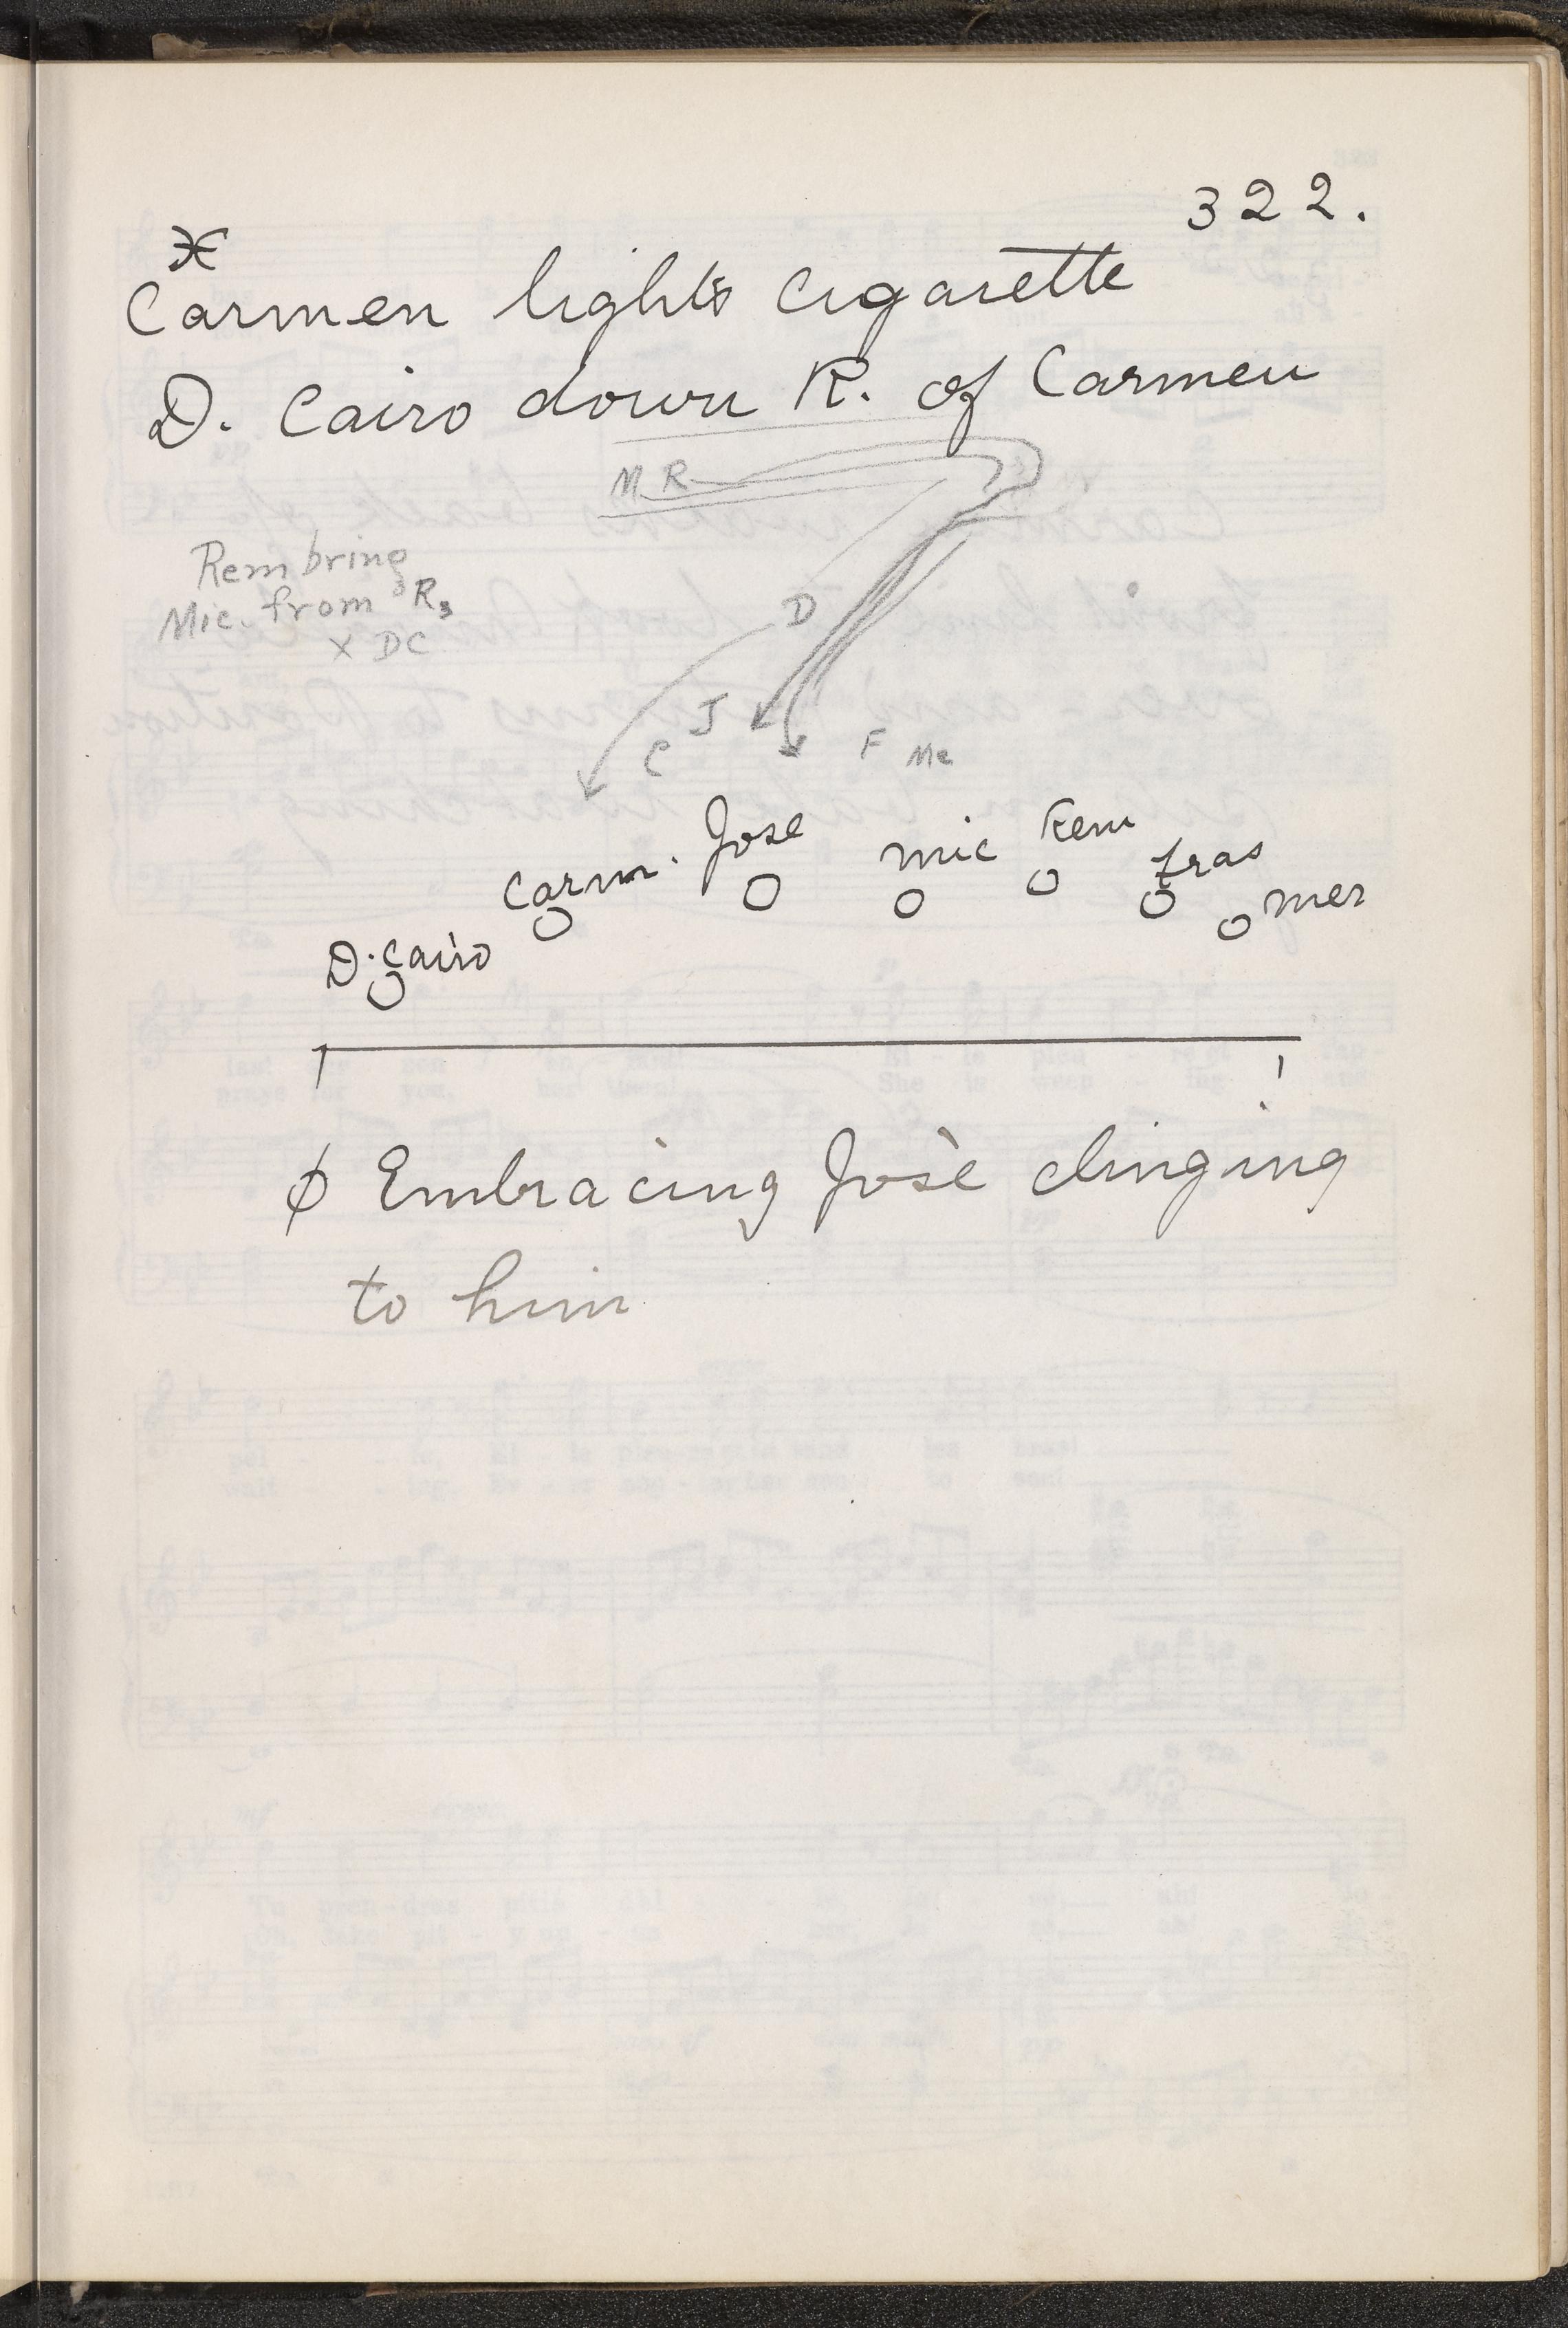 322.
Carmen lights cigarette
D. Cairo down R. of Carmen
M R
Rem bring
Mic. from R3
X DC
D
J
C
F Me
Carm. Jose mic Rem fras mer
D. Cairo
ϕ Embracing Josè clinging
to him